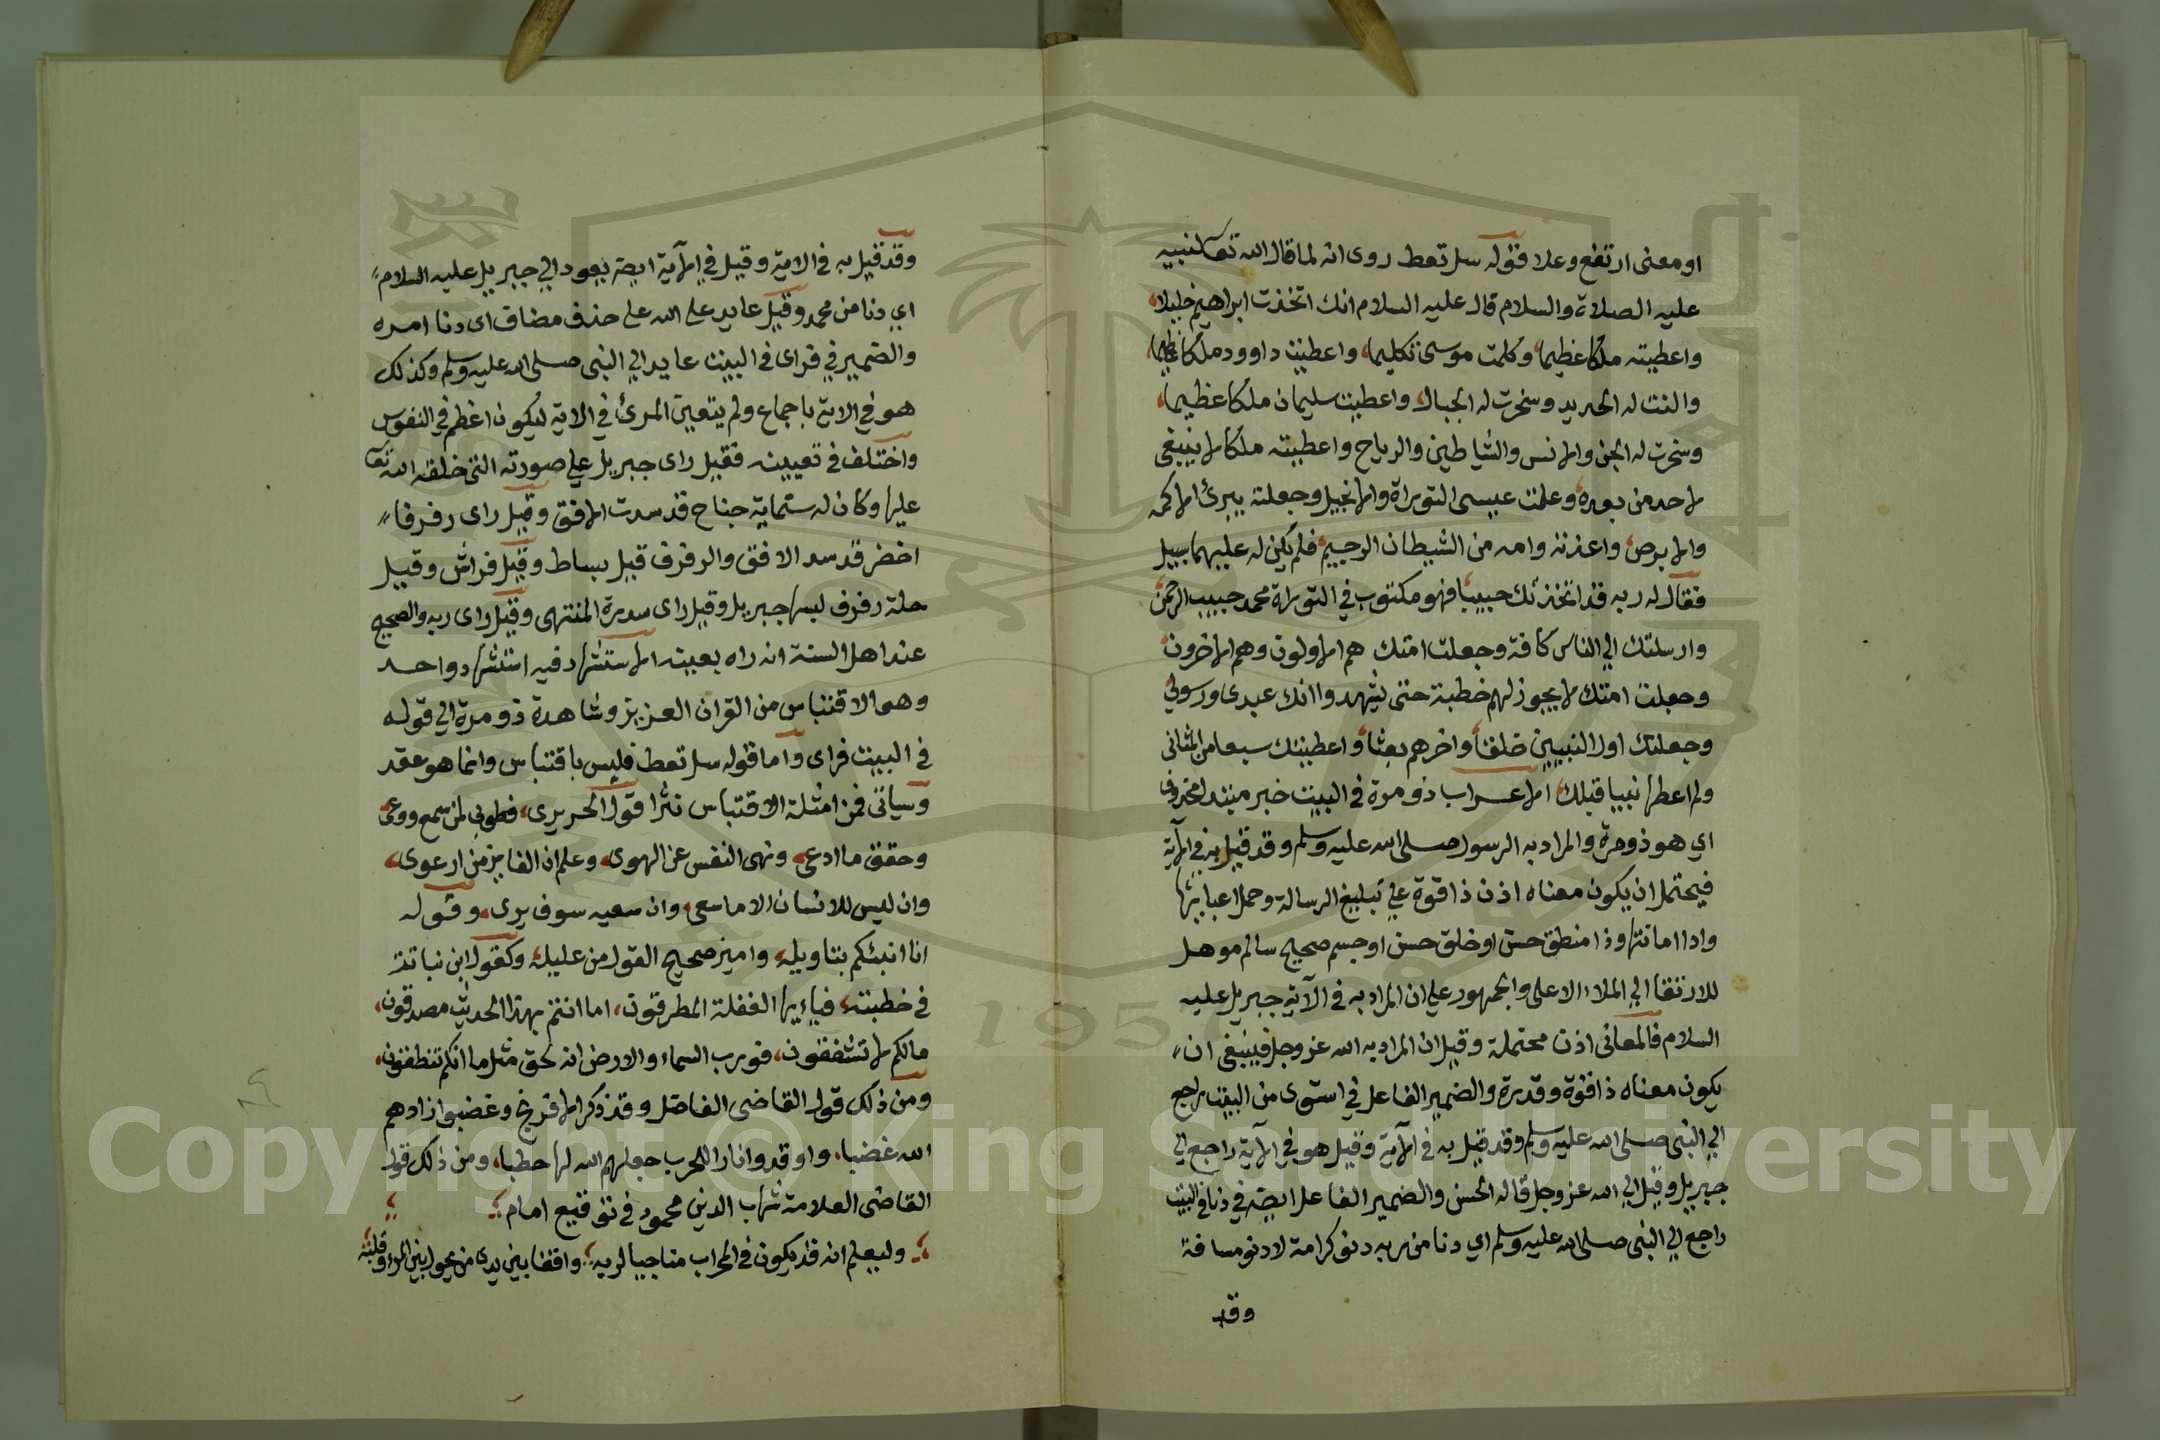 او معنى ارتفع وعلا فقوله سل تعط روى انه لما قال الله تعالى لنبيه
عليه الصلاة والسلام قال عليه السلام انك اتخذت ابراهيم خليلا
واعطيته ملكا عظيما وكلمت موسى تكليما واعطيت داوود ملكا عظيما
والنت له الحديد وسخرت له الجبال واعطيت سليمان ملكا عظيما
وسخرت له الجن والانس والشياطين والرياح واعطيته ملكا لا ينبغي
لاحد من بعده وعلمت عيسى التوراة والانجيل وجعلته يبرئ الاكمه
والابرص واعذته وامه من الشيطان الرجيم فلم يكن له عليهما سبيل
فقال له ربه قد اتخذتك حبيبا فهو مكتوب في التوراة محمد حبيب الرحمن
وارسلتك الي الناس كافة وجعلت امتك هم الاولون وهم الاخرون
وجعلت امتك لا يجوز لهم خطبة حتى يشهدوا انك عبدي ورسولي
وجعلتك اول النبيين خلقا واخرهم بعثا واعطيتك سبعا من المثاني
ولم اعطها نبيا قبلك الاعراب ذو مرة في البيت خبر مبتدا محذوف
اي هو ذو مرة والمراد به الرسول صلى الله عليه وسلم وقد قيل به في الآية
فيحتمل ان يكون معناه اذن ذا قوة علي تبليغ الرسالة وحمل اعبائها
وادا امانتها وذا منطق حسن او خلق حسن او جسم صحيح سالم موهل
للارتقا الي الملاء الاعلى والجمهور علي ان المراد به في الآية جبريل عليه
السلام فالمعاني اذن محتملة وقيل ان المراد به الله عز وجل فينبغي ان
يكون معناه ذا قوة وقدرة والضمير الفاعل في استوى من البيت يرجع
الي النبي صلى الله عليه وسلم وقد قيل به في الآية وقيل هو في الآية راجع الي
جبريل وقيل الي الله عز وجل قاله الحسن والضمير الفاعل ايضه في دنا في البيت
راجع الي النبي صلى الله عليه وسلم اي دنا من ربه دنو كرامة لا دنو مسافة
وقد
وقد قيل به في الاية وقيل في الآية ايضه يعود الي جبريل عليه السلام
اي دنا من محمد وقيل عايد على الله على حذف مضاف اي دنا امره
والضمير في فراى في البيت عايد الي النبي صلى الله عليه وسلم وكذلك
هو في الاية باجماع ولم يتعين المرئ في الاية ليكون اعظم في النفوس
واختلف في تعيينه فقيل راى جبريل علي صورته التي خلقه الله تعا
عليها وكان له ستماية جناح قد سدت الافق وقيل راى رفرفا
اخضر قد سد الافق والرفرف قيل بساط وقيل فراش وقيل
حلة رفرف لبسها جبريل وقيل راى سدرة المنتهى وقيل راى ربه والصحيح
عند اهل السنة انه راه بعينه الاستشهاد فيه استشهاد واحد
وهو الاقتباس من القران العزيز وشاهده ذو مرة الي قوله
في البيت فراى واما قوله سل تعط فليس باقتباس وانما هو عقد
وسياتي فمن امثلة الاقتباس نثرا قول الحريري فطوبي لمن سمع ووعى
وحقق ما ادعى ونهى النفس عن الهوى وعلم ان الفايز من ارعوى
وان ليس للانسان الا ما سعى وان سعيه سوف يرى وقوله
انا انبئكم بتاويله واميز صحيح القول من عليله وكقول ابن نباتة
في خطبته فيا ايها الغفلة المطرقون اما انتم بهذا الحديث مصدقون
مالكم لا تشفقون فورب السماء والارض انه لحق مثل ما انكم تنطقون
ومن ذلك قول القاضي الفاضل وقد ذكر الافرنج وغضبوا زادهم
الله غضبا واوقدوا نارا للحرب جعلهم الله لها حطبا ومن ذلك قول
القاضي العلامة شهاب الدين محمود في توقيع امام
وليعلم انه قد يكون في المحراب مناجيا لربه واقفا بين يدى من يحول بين المرء وقلبه